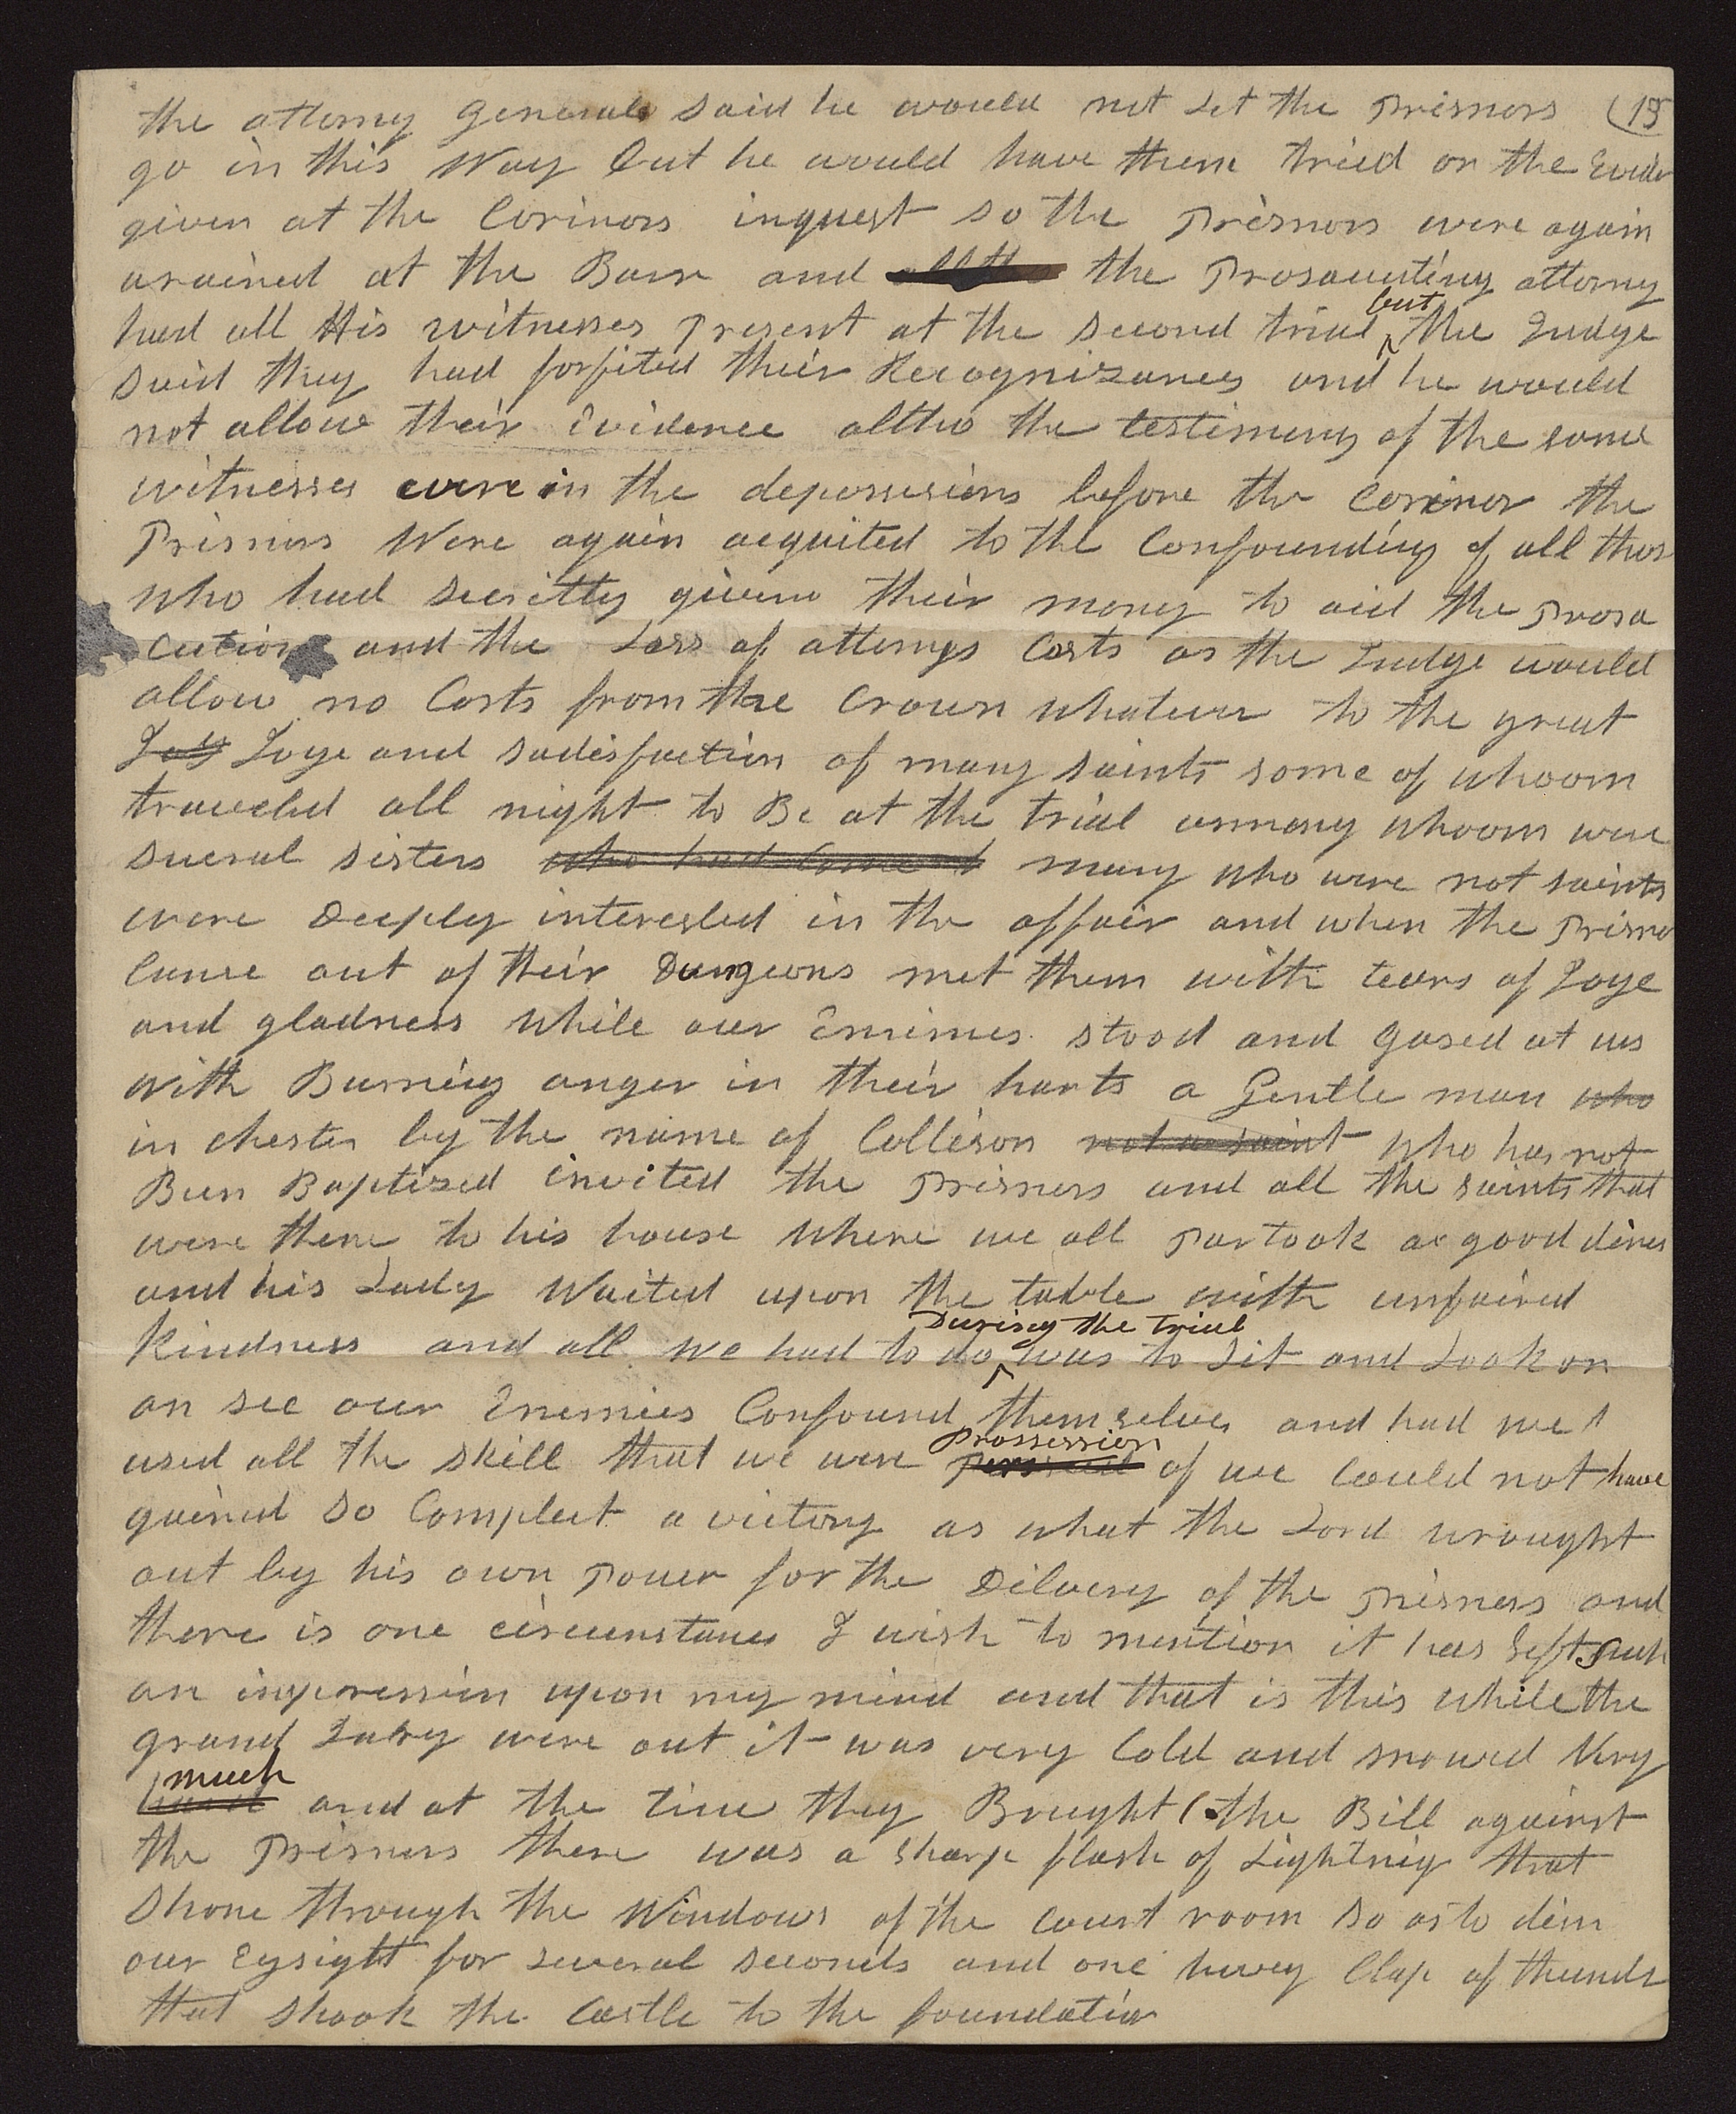 the attorny general said he would not Let the Prisnors (15
go in this Way but he would have them tried on the Evide
given at the Corinors inquest so the Prisnors were again
arained at the Barr and the Prosacuting attorny
had all His witnesses Present at the second trial but the Judge
said they had forfited their Recognizances and he would
not allow their Evidence altho the testimony of the same
witnesses were in the depossisions before the Corinor the
Prisnors Were again acquited to the Confounding of all thos
who had secritty given their money to aid the Prosa
Cution and the Loss of attornys Costs as the Judge would
allow no Costs from the Crown whatever to the great
Joy Joye and sadisfaction of many saints some of whoom
traveled all night to Be at the trial ammong whoom were
sueral sisters who had Come many who were not saints
were Deeply interested in the affair and when the Prisno
Came out of their Dungeons met them with tears of Joye
and gladness while our Enimies stood and gased at us
with Burning anger in their harts a Gentle man who
in chester by the name of Collison not a saint who has not
Been Baptised invited the Prisners and all the saints that
were there to his house where we all Partook a good diner
and his Lady Waited upon the table with unfained
Kindness and all we had to do During the trial was to Sit and Look on
an see our Enemies Confound themselves and had we
used all the skill that we were prossession of we Could not have
gained so Compleet a victory as what the Lord wrought
out by his own Power for the Dilivery of the Prisners and
there is one circumstance I wish to mention it has Left such
an impression upon my mind and that is this while the
grand Jury were out it was very Cold and snowed Very
hard much and at the time they Brought the Bill against
the Prisners there was a sharp flash of Lightnig that
Shone through the Windows of the Court room so as to dim
our Eysight for several seconds and one hevey Clap of thunde
that shook the Castle to the foundation